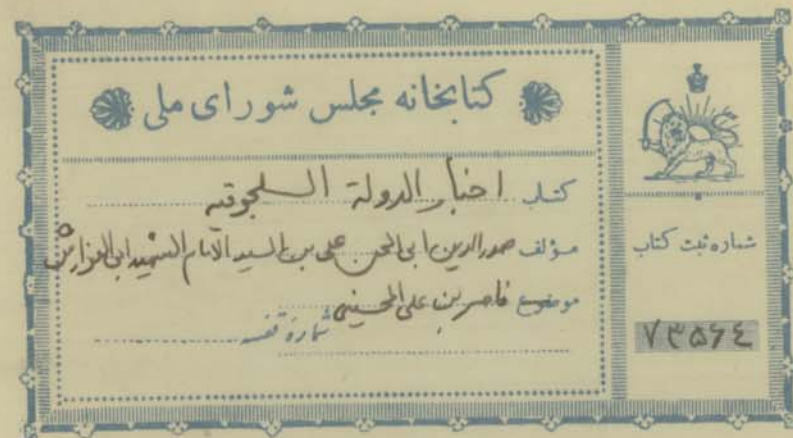 کتابخانه مجلس شورای ملی
کتاب اخبار الدولة السلجوقیه
مؤلف صدرالدین ابی الحسن علی بن السید الامام الشهید ابی الفوارس
موضوع ناصر بن علی الحسینی
شماره قفسه
شماره ثبت کتاب
۷۳۵۶۴